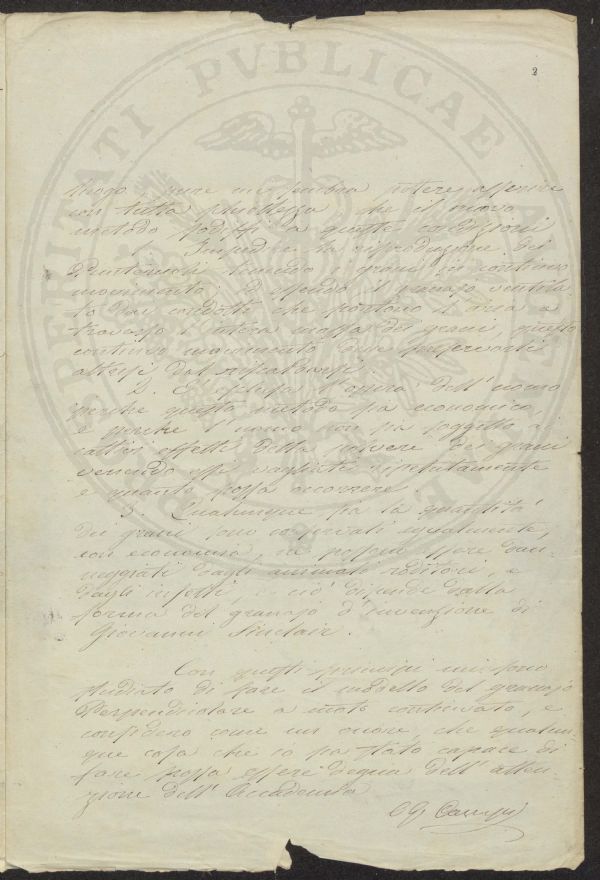 2
luogo, pure mi sembra potere asserire
con tutta che il nuovo
metodo sodisfi a queste condizioni
1. Impedire la riproduzione dei
tenendo i grani in continuo
movimento; ed essendo il granajo ventila
to dai condotti che portano l'aria a
traverso l'intera massa dei grani, questo
continuo movimento deve preservarli
altresì dal riscaldarsi.
2. E' esclusa l'opera dell'uomo
perchè questo metodo sia economico,
e perchè l'uomo non sia soggetto a
cattivi effetti della polvere dei grani
venendo essi vagliati ripetutamente
e quanto possa occorrere.
3. Qualunque sia la quantità
dei grani sono conservati egualmente,
con economia, nè possono essere dan-
neggiati dagli animali roditori, e
dagli insetti e ciò dipende dalla
forma del granajo d'invenzione di
Giovanni Sinclair.
Con questi principi mi sono
studiato di fare il modello del granajo
Perpendicolare a moto continuato, e
considero come un onore, che qualun-
que cosa che io sia stato capace di
fare possa essere degna dell'atten-
zione dell'Accademia
PVBLICAE